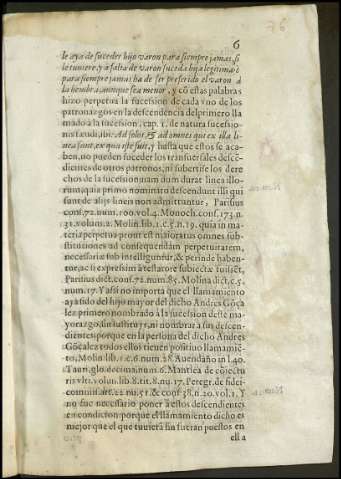 76
6
le aya de suceder hijo varon para siempre jamas, si
le tuuiere, y à falta de varon suceda hija legitima: è
para siempre jamas ha de ser preferido el varon à
la hembra, aunque sea menor, y cõ estas palabras
hizo perpetua la sucesion de cada vno de los
patronazgos en la descendencia del primero lla
mado à la sucesion, cap. 1. de natura sucesio-
nis feudi, ibi: Ad solos, & ad omnes qui ex illa li-
nea sunt, ex qua iste fuit, y hasta que estos se aca-
ben, no pueden suceder los transuersales descẽ-
dientes de otros patronos, ni subertise los dere
chos de la sucesion nam dum durat linea illo-
rum, quia primo nominato descendunt illi qui
sunt de alijs lineis non admittuntur, Parisius
cons. 72. num. 100. vol. 4. Monoch. cons. 173. n.
31. volum. 2. Molin. lib. 1. c. 5. n. 19. quia in ma-
teria perpetua prout est maioratus omnes sub-
stitutiones ad consequendam perpetuitatem,
necessariæ sub intelliguntur, & perinde haben-
tur, ac si expresim à testatore subiectæ fuisset,
Parisius dict. cons. 72. num. 85. Molina dict. c. 5.
num. 17. Y assi no importa que el llamamiento
aya sido del hijo mayor del dicho Andres Gõça
lez primero nombrado à la sucesion deste ma-
yorazgo, sin sustituyr, ni nombrar à sus descen-
dientes porque en la persona del dicho Andres
Gõçalez todos ellos tienen positiuo llamamiẽ-
to, Molin. lib. 1. c. 6. num. 28. Auendaño in l. 40.
Taur. glo. decima, num. 6. Mantica de cõiectu
ris vlti. volun. lib. 8. tit. 8. nu. 17. Peregr. de fidei-
comiss. art. 22. nu. 51. & cons. 38. n. 20. vol. 1. Y
no fue necessario poner à estos descendientes
en condicion porque el llamamiento dicho es
mejor que el que tuuierã sin fueran puestos en
ella